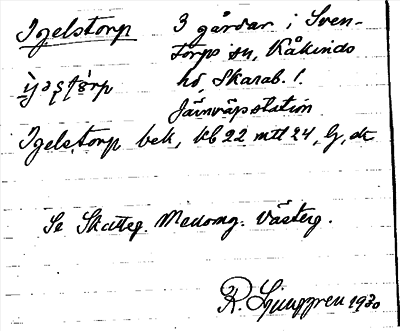 Igelstorp 3 gårdar i Sven-
torps sn, Kåkinds
hd, Skarab. l.
Järnvägsstation
Igelstorp bek, kb 22 mtl 24, G, dt
Se Skatteg. Medomg. Västerg.
R. Ljunggren 1930